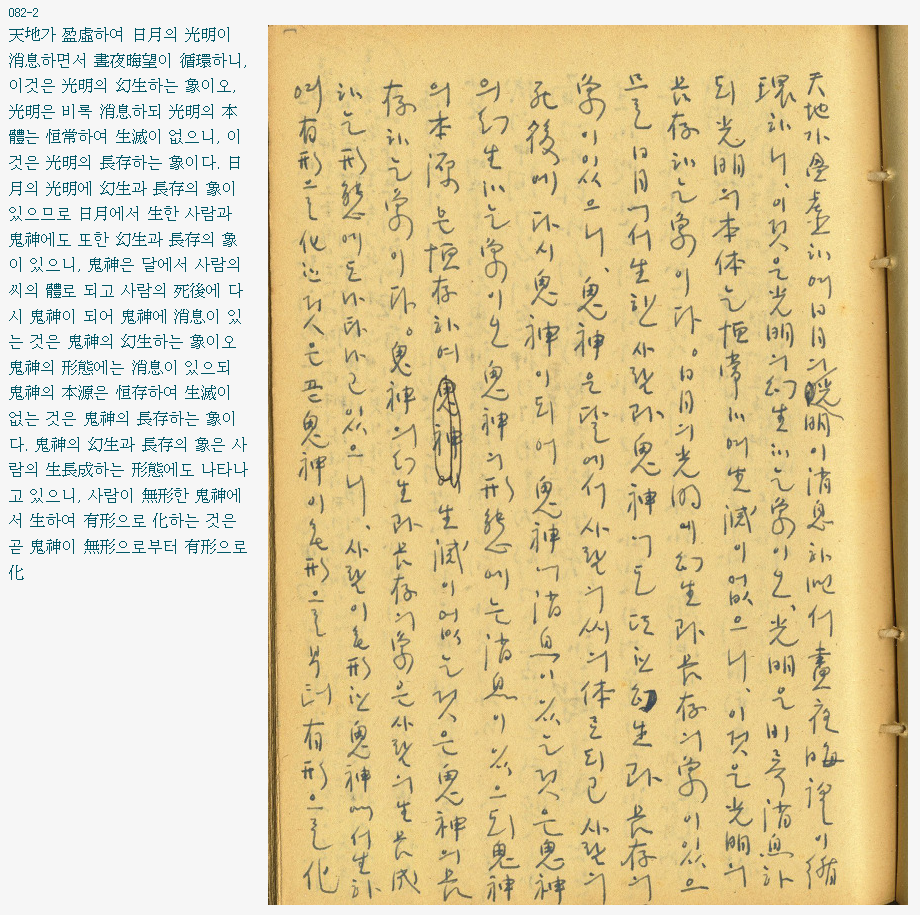 082-2
天地가 盈虛하여 日月의 光明이
消息하면서 晝夜晦望이 循環하니,
이것은 光明의 幻生하는 象이오,
光明은 비록 消息하되 光明의 本
體는 恒常하여 生滅이 없으니, 이
것은 光明의 長存하는 象이다. 日
月의 光明에 幻生과 長存의 象이
있으므로 日月에서 生한 사람과
鬼神에도 또한 幻生과 長存의 象
이 있으니, 鬼神은 달에서 사람의
씨의 體로 되고 사람의 死後에 다
시 鬼神이 되어 鬼神에 消息이 있
는 것은 鬼神의 幻生하는 象이오
鬼神의 形態에는 消息이 있으되
鬼神의 本源은 恒存하여 生滅이
없는 것은 鬼神의 長存하는 象이
다. 鬼神의 幻生과 長存의 象은 사
람의 生長成하는 形態에도 나타나
고 있으니, 사람이 無形한 鬼神에
서 生하여 有形으로 化하는 것은
곧 鬼神이 無形으로부터 有形으로
化
天地가 盈虛하여 日月의 光明이 消息하면서 晝夜晦望이 循
環하니, 이것은 光明의 幻生하는 象이오, 光明은 비록 消息하
되 光明의 本体는 恒常하여 生滅이 없으니, 이것은 光明의
長存하는 象이다. 日月의 光明에 幻生과 長存의 象이 있으
므로 日月에서 生한 사람과 鬼神에도 또한 幻生과 長存의
象이 있으니, 鬼神은 달에서 사람의 씨의 体로 되고 사람의
死後에 다시 鬼神이 되어 鬼神에 消息이 있는 것은 鬼神
의 幻生하는 象이오 鬼神의 形態에는 消息이 있으되 鬼神
의 本源은 恒存하여 生滅이 없는 것은 鬼神의 長
存하는 象이다. 鬼神의 幻生과 長存의 象은 사람의 生長成
하는 形態에도 나타나고 있으니, 사람이 無形한 鬼神에서 生하
여 有形으로 化하는 것은 곧 鬼神이 無形으로부터 有形으로 化